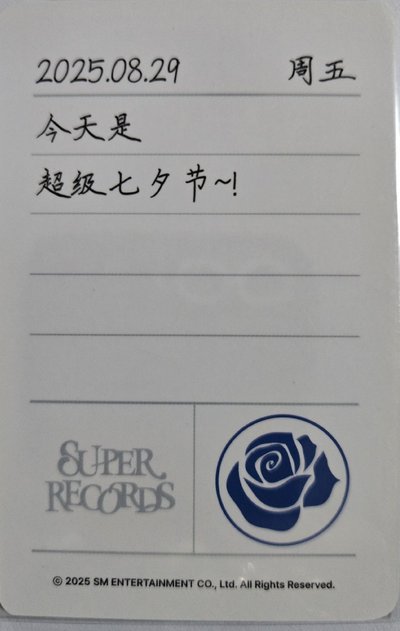 2025.08.29 周五
今天是
超级七夕节~!
SUPER
RECORDS
© 2025 SM ENTERTAINMENT CO., Ltd. All Rights Reserved.